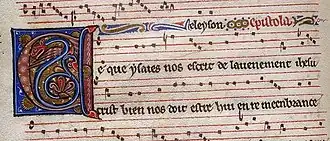 leleyson Epistola
e que ysaies nos escrit de lauenement ihesu
crist bien nos doit estre hui en re menbrance